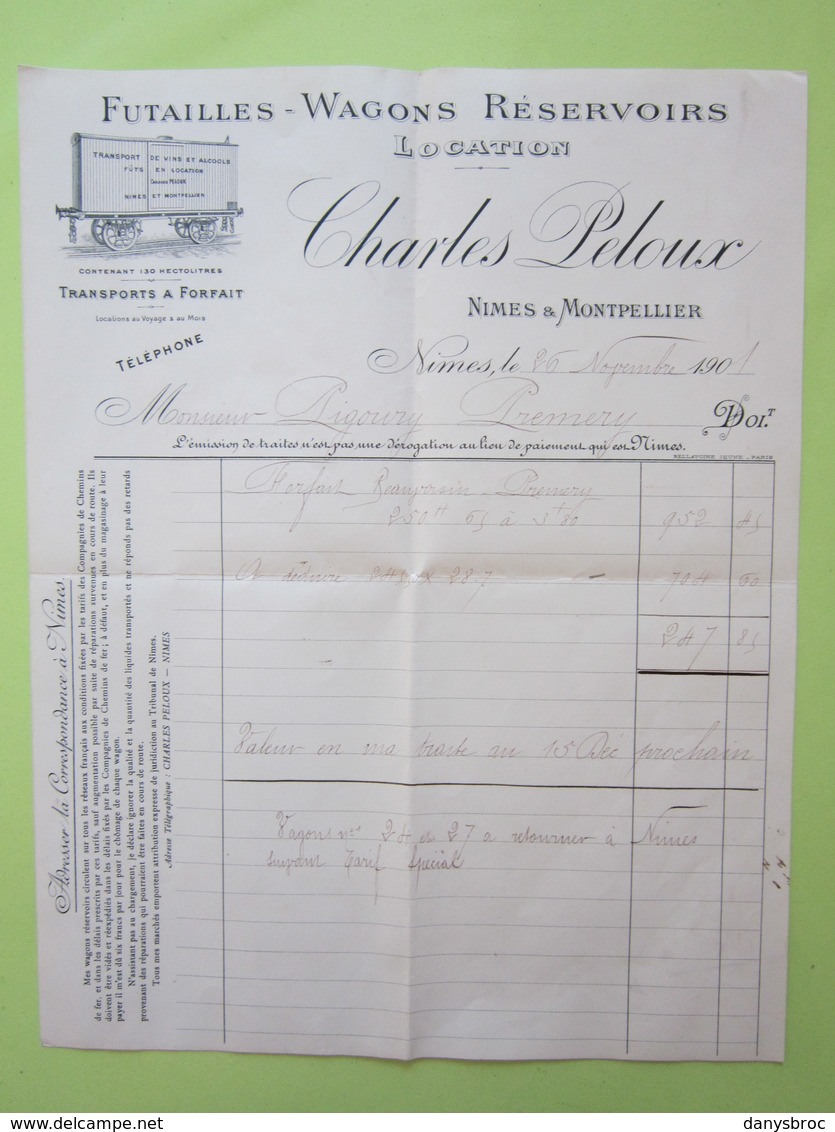 FUTAILLES - WAGONS RÉSERVOIRS
LOCATION
TRANSPORT DE VINS ET ALCOOLS
FÛTS EN LOCATION
CHARLES PELOUX
NIMES ET MONTPELLIER
CONTENANT 130 HECTOLITRES
TRANSPORTS A FORFAIT
Locations au Voyage & au Mois
TÉLÉPHONE
Charles Peloux
NIMES & MONTPELLIER
Nimes, le 26 Novembre 1901
Monsieur Pigoury Premery DOI.T
L'émission de traites n'est pas une dérogation au lieu de paiement qui est Nimes.
BELLATOIRE JEUNE - PARIS
Forfait Beauvoisin - Premery
250 H 65 à 3 f 80 952 45
A déduire 28.7 704 60
247 85
Valeur en ma traite au 15 Déc prochain
Wagons nos 24 et 27 a retourner à Nimes
suivant Tarif spécial
Adresser la Correspondance à Nimes.
Mes wagons réservoirs circulent sur tous les réseaux français aux conditions fixées par les tarifs des Compagnies de Chemins
de fer, et dans les délais prescrits par ces tarifs, sauf augmentation possible par suite de réparations survenues en cours de route. Ils
doivent être vidés et réexpédiés dans les délais fixés par les Compagnies de Chemins de fer ; à défaut, et en plus du magasinage à leur
payer il m'est dû six francs par jour pour le chômage de chaque wagon.
N'assistant pas au chargement, je déclare ignorer la qualité et la quantité des liquides transportés et ne réponds pas des retards
provenant des réparations qui pourraient être faites en cours de route.
Tous mes marchés emportent attribution expresse de juridiction au Tribunal de Nimes.
Adresse Télégraphique : CHARLES PELOUX — NIMES
delcampe.net
danysbroc